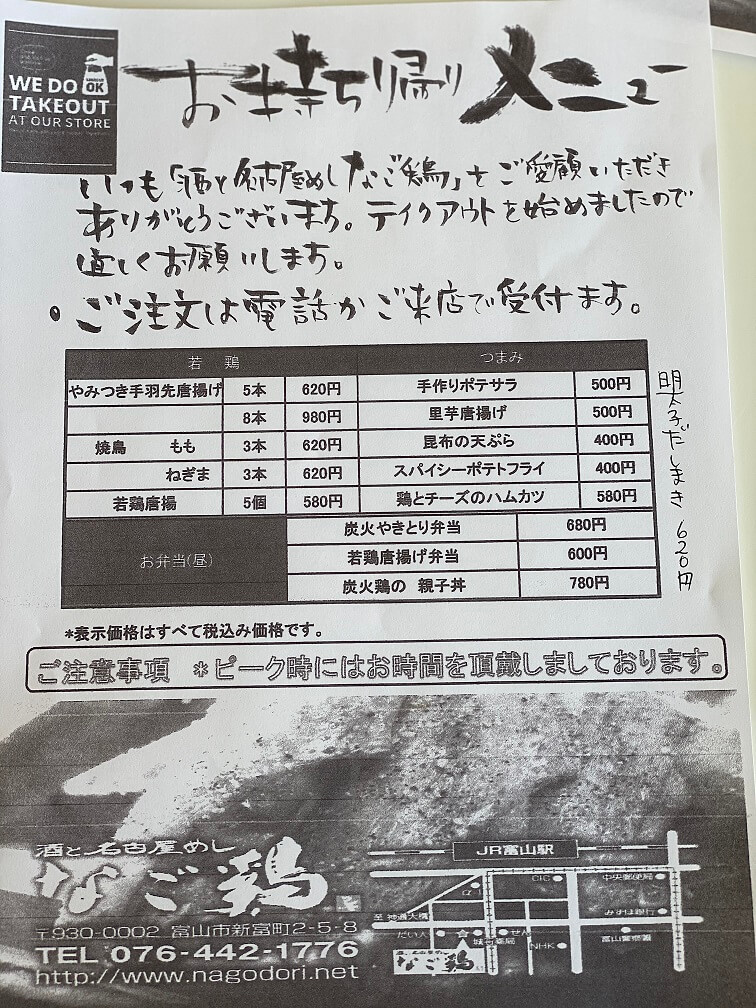 WE DO
TAKEOUT
AT OUR STORE
OK
お持ち帰り メニュー
いつも「酒と名古屋めし なご鶏」をご愛顧いただき
ありがとうございます。テイクアウトを始めましたので
宜しくお願いします。
・ご注文は電話かご来店で受付ます。
若 鶏 つまみ
やみつき手羽先唐揚げ 5本 620円 手作りポテサラ 500円
8本 980円 里芋唐揚げ 500円
焼鳥 もも 3本 620円 昆布の天ぷら 400円
ねぎま 3本 620円 スパイシーポテトフライ 400円
若鶏唐揚 5個 580円 鶏とチーズのハムカツ 580円
明太子だしまき 620円
お弁当(昼)
炭火やきとり弁当 680円
若鶏唐揚げ弁当 600円
炭火鶏の 親子丼 780円
*表示価格はすべて税込み価格です。
ご注意事項 *ピーク時にはお時間を頂戴しましております。
酒と名古屋めし
なご鶏
〒930-0002 富山市新富町2-5-8
TEL 076-442-1776
http://www.nagodori.net
JR富山駅
CIC
中央郵便局
至 神通大橋
みずほ銀行
だい人
せん
城谷薬局
NHK
富山警察署
なご鶏